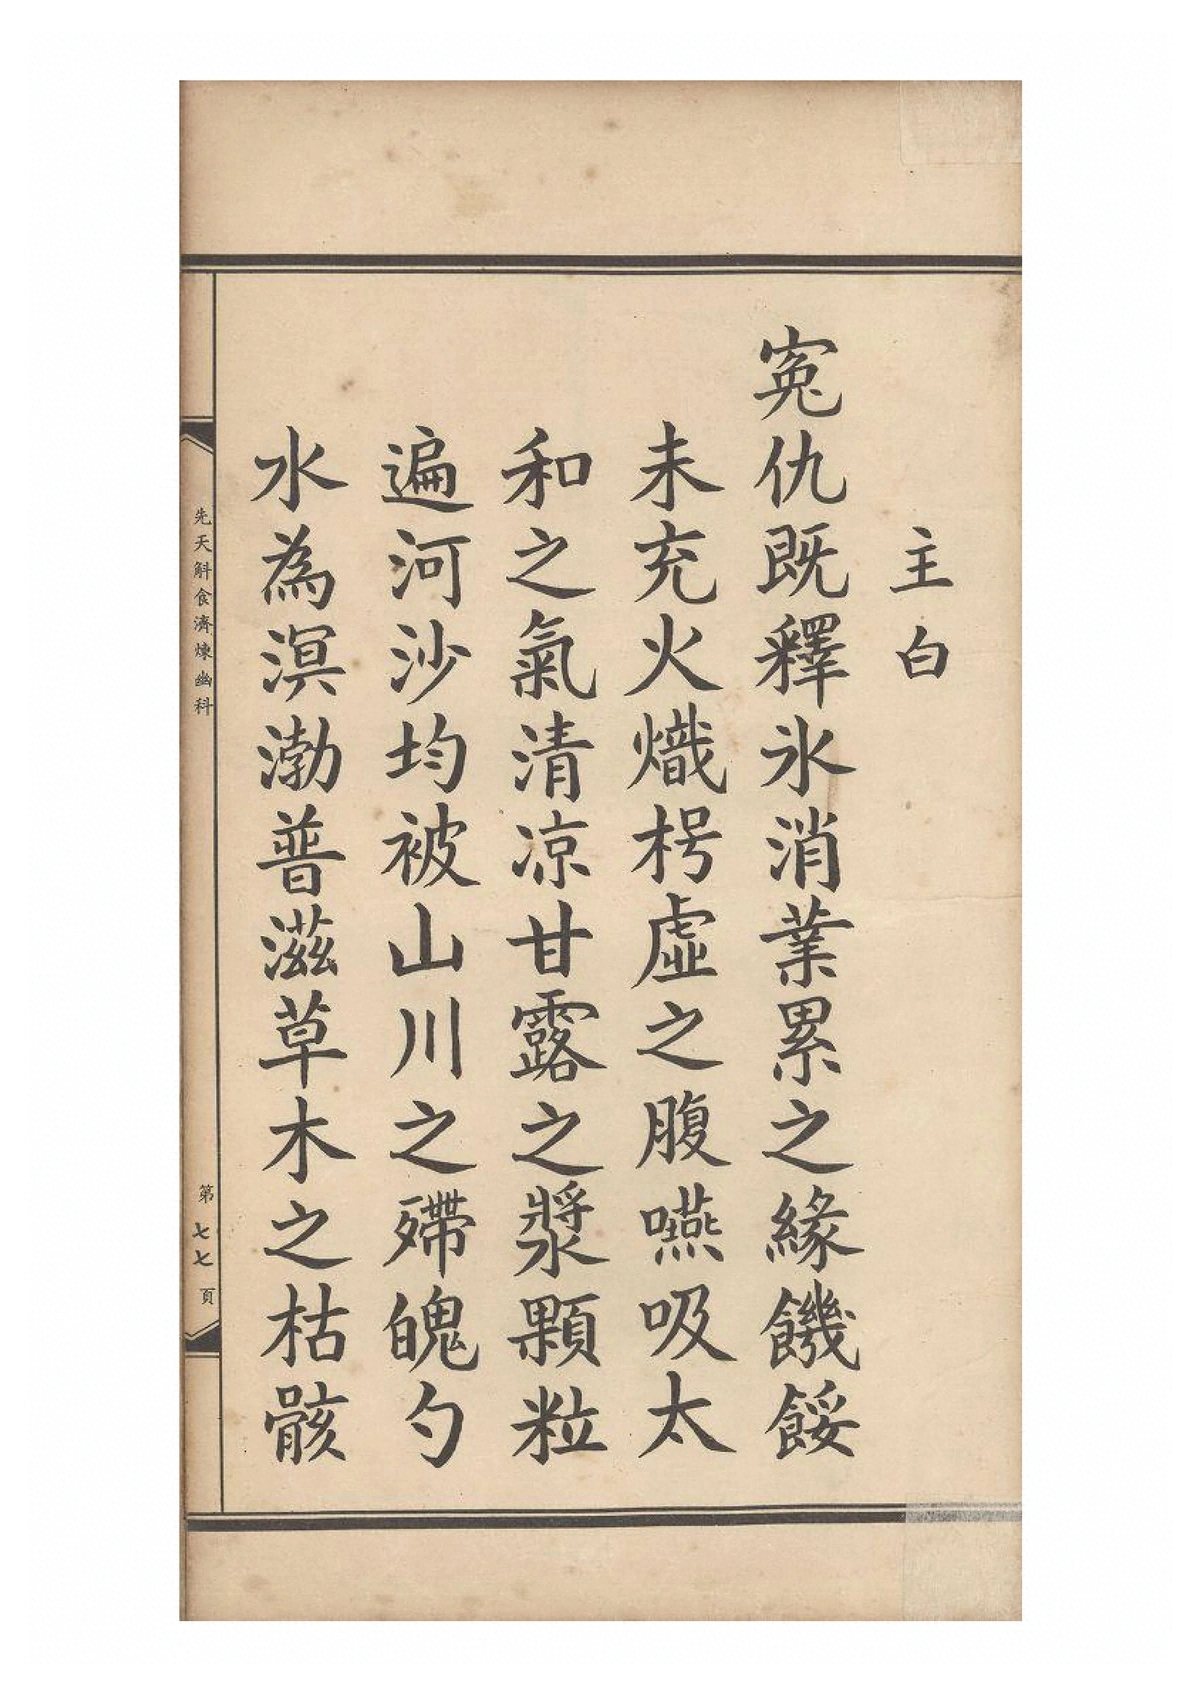 主白
寃仇既釋氷消業累之緣饑餒
未充火熾枵虛之腹嚥吸太
和之氣清凉甘露之漿顆粒
遍河沙均被山川之殢魄勺
水為溟渤普滋草木之枯骸
先天斛食濟煉幽科
第七七頁